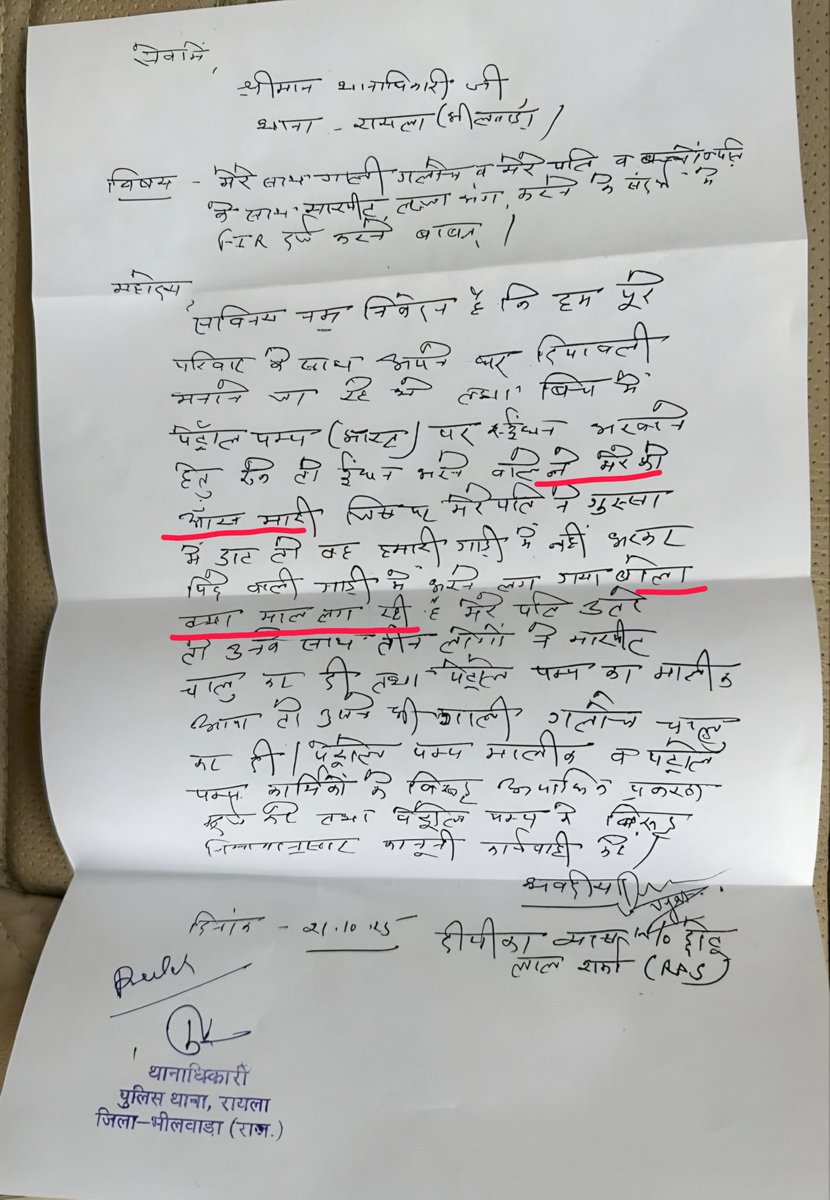 सेवामें,
श्रीमान थानाधिकारी जी
थाना - रायला (भीलवाड़ा)
विषय - मेरे साथ गाली गलौच व मेरे पति व बच्चों
के साथ मारपीट, लज्जा भंग, करने के संदर्भ में
FIR दर्ज करने बाबत् ।
महोदय,
सविनय नम्र निवेदन है कि हम पूरे
परिवार के साथ अपने घर दिपावली
मनाने जा रहे थे तथा बिच में
पेट्रोल पम्प (भारत) पर ईंधन भरवाने
हेतु रुके तो ईंधन भरने वाले ने मेरे को
आँख मारी जिस पर मेरे पति ने गुस्सा
में डाट तो वह हमारी गाड़ी में नहीं भरकर
पिछे वाली गाड़ी में भरने लग गया बोला
क्या माल लग रही है मेरे पति उतरे
तो उनके साथ तीन लोगों ने मारपीट
चालु कर दी तथा पेट्रोल पम्प का मालीक
आया तो उसने भी गाली गलौच चालु
कर दी । पेट्रोल पम्प मालीक व पेट्रोल
पम्प कार्मिकों के विरूद्ध अपराधिक प्रकरण
दर्ज करे तथा पेट्रोल पम्प के विरूद्ध
नियमानुसार कानूनी कार्यवाही करे
भवदीया
दिनांक - 21.10.25
दीपिका व्यास W/o छोटू
लाल शर्मा (RAS)
थानाधिकारी
पुलिस थाना, रायला
जिला-भीलवाड़ा (राज.)